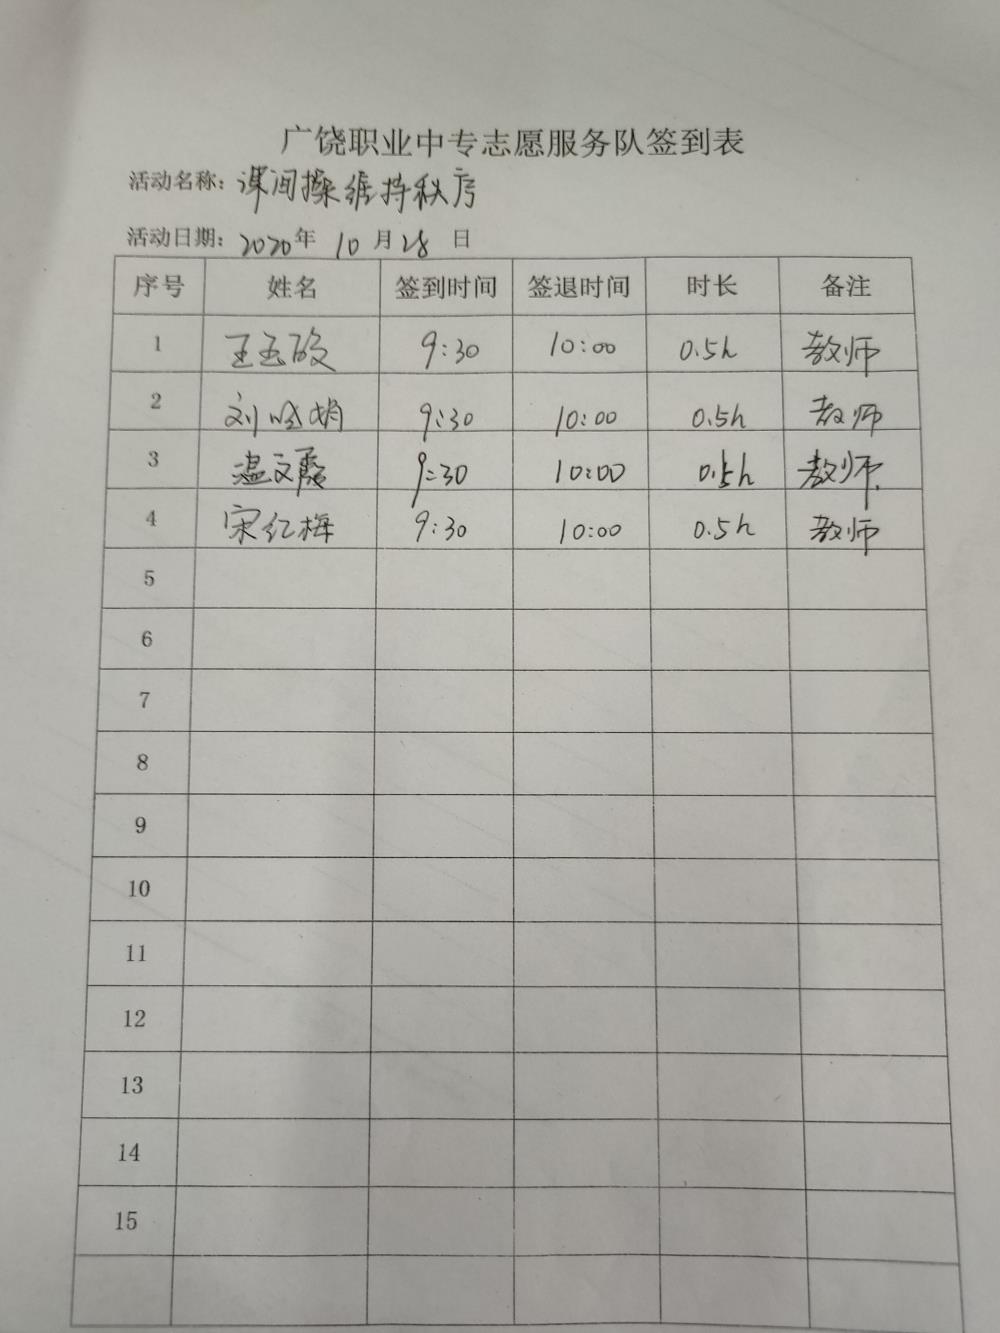 广饶职业中专志愿服务队签到表
活动名称：课间操维持秩序
活动日期：2020年 10 月 28 日
序号 姓名 签到时间 签退时间 时长 备注
1 9:30 10:00 0.5h 教师
2 刘 9:30 10:00 0.5h 教师
3 温文霞 9:30 10:00 0.5h 教师
4 宋红梅 9:30 10:00 0.5h 教师
5
6
7
8
9
10
11
12
13
14
15